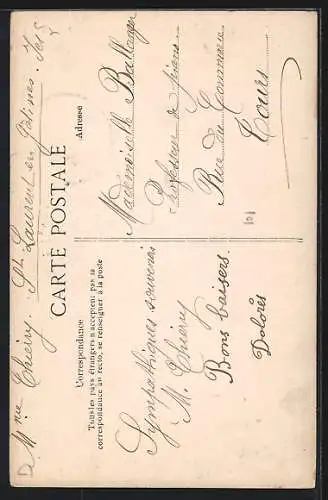 Mme Thiery. St Laurent en Gâtines. I et L
CARTE POSTALE
Correspondance
Tous les pays étrangers n'acceptent pas la
correspondance au recto, se renseigner à la poste
Sympathiques souvenirs
M. Thiery
Bons baisers.
Dolorès
Adresse
Mademoiselle Ballager
Professeur de piano
Rue du Commerce
Tours